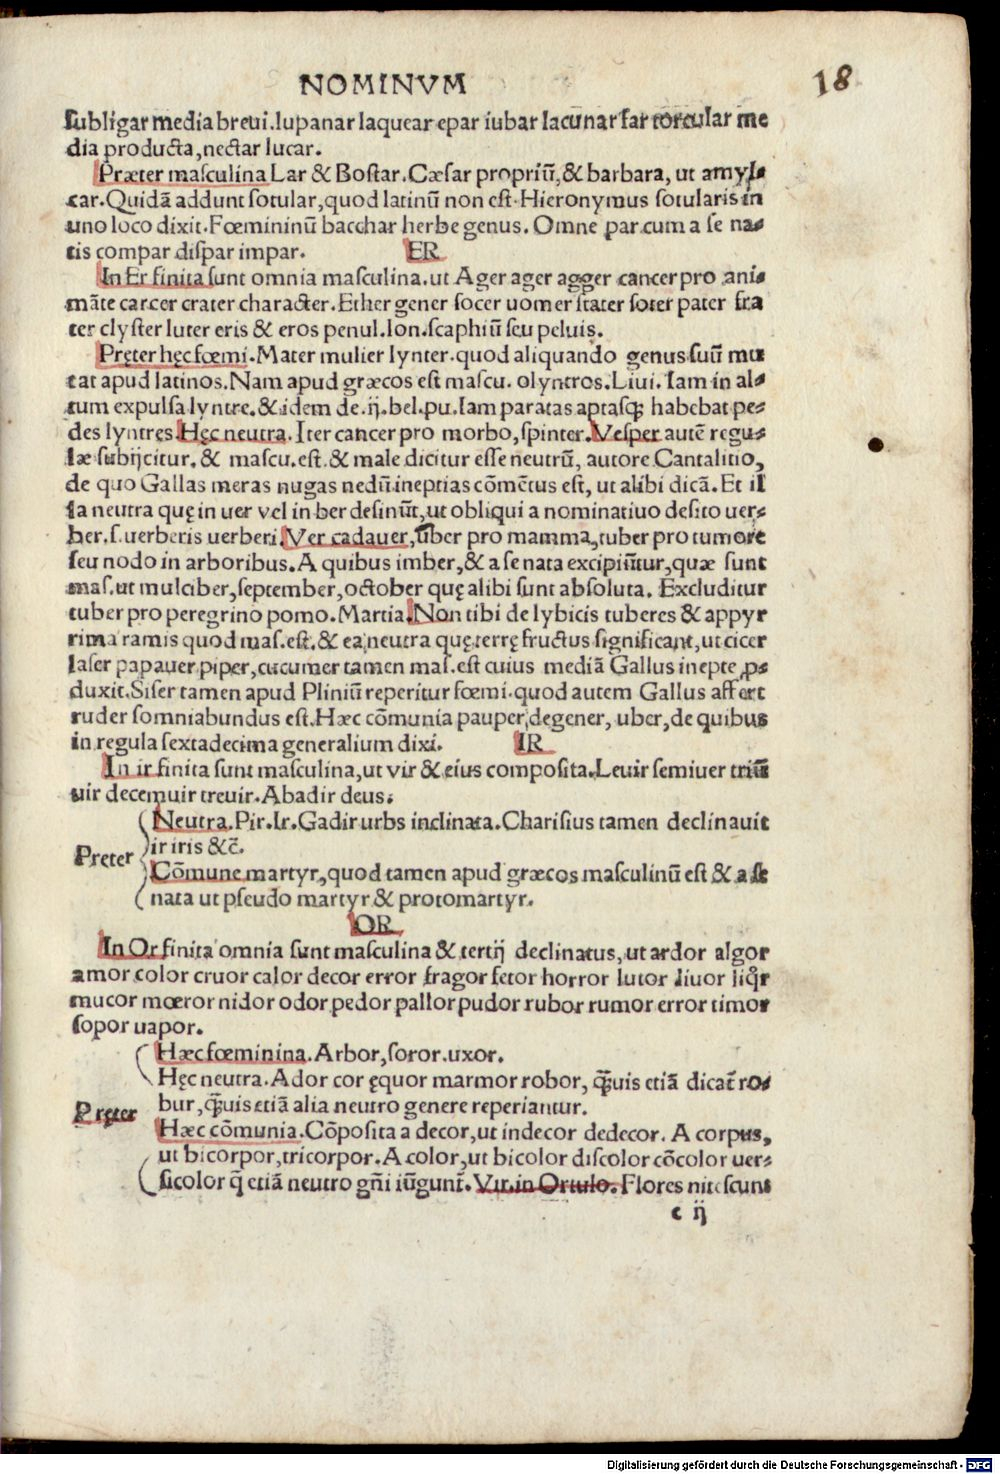 NOMINVM
18
subligar media breui. lupanar laquear epar iubar lacunar far torcular me
dia producta, nectar lucar.
Præter masculina Lar & Bostar. Cæsar propriũ, & barbara, ut amyl-
car. Quidã addunt sotular, quod latinũ non est. Hieronymus sotularis in
uno loco dixit. Fœmininũ bacchar herbe genus. Omne par cum a se na-
tis compar dispar impar.
ER
In Er finita sunt omnia masculina. ut Ager ager agger cancer pro ani-
mãte carcer crater character. Ether gener socer uomer stater soter pater fra
ter clyster luter eris & eros penul. lon. scaphiũ seu peluis.
Pręter hęc fœmi. Mater mulier lynter. quod aliquando genus suũ mu
tat apud latinos. Nam apud græcos est mascu. olyntros. Liui. Iam in al-
tum expulsa lyntre. & idem de .ij. bel. pu. Iam paratas aptasqȝ habebat pe-
des lyntres. Hęc neutra. Iter cancer pro morbo, spinter. Vesper autẽ regu-
læ subijcitur. & mascu. est. & male dicitur esse neutrũ, autore Cantalitio,
de quo Gallas meras nugas nedũ ineptias cõmẽtus est, ut alibi dicã. Et il
la neutra quę in uer vel in ber desinũt, ut obliqui a nominatiuo desito uer-
ber. s. uerberis uerberi. Ver cadauer, uber pro mamma, tuber pro tumore
seu nodo in arboribus. A quibus imber, & a se nata excipiũtur, quæ sunt
mas. ut mulciber, september, october quę alibi sunt absoluta. Excluditur
tuber pro peregrino pomo. Martia. Non tibi de lybicis tuberes & appyr
rima ramis quod mas. est. & ea neutra quę terrę fructus significant, ut cicer
laser papauer piper, cucumer tamen mas. est cuius mediã Gallus inepte ꝓ
duxit. Siser tamen apud Pliniũ reperitur fœmi. quod autem Gallus affert
ruder somniabundus est. Hæc cõmunia pauper, degener, uber, de quibus
in regula sextadecima generalium dixi.
IR
In ir finita sunt masculina, ut vir & eius composita. Leuir semiuer triũ
uir decemuir treuir. Abadir deus.
Neutra. Pir. Ir. Gadir urbs inclinata. Charisius tamen declinauit
ir iris &c̃.
Preter
Cõmune martyr, quod tamen apud græcos masculinũ est & a se
nata ut pseudo martyr & protomartyr.
OR
In Or finita omnia sunt masculina & tertij declinatus, ut ardor algor
amor color cruor calor decor error fragor fetor horror lutor liuor liq̃r
mucor mœror nidor odor pedor pallor pudor rubor rumor error timor
sopor uapor.
Hæc fœminina. Arbor, soror. uxor.
Hęc neutra. Ador cor ęquor marmor robor, q̃uis etiã dicat̃ ro-
Pręter
bur, q̃uis etiã alia neutro genere reperiantur.
Hæc cõmunia. Cõposita a decor, ut indecor dedecor. A corpus,
ut bicorpor, tricorpor. A color, ut bicolor discolor cõcolor uer-
sicolor q̃ etiã neutro gñi iũgunt̃. Vir. in Ortulo. Flores nitescunt
c ij
Digitalisierung gefördert durch die Deutsche Forschungsgemeinschaft - DFG